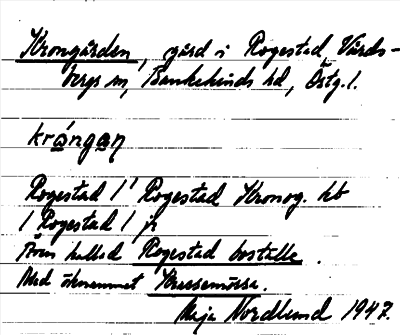 Krongården, gård i Rogestad, Vårds-
bergs sn, Bankekinds hd, Östg. l.
krångan
Rogestad 1¹ Rogestad Kronog. hb
1 Rogestad 1 jr
Även kallad Rogestad boställe.
Med öknamnet Kussemössa.
Maja Nordlund 1947.